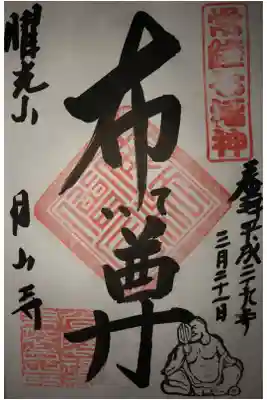 常陸七福神
奉拝平成二十九年
三月二十一日
布てい尊
曜光山 月山寺